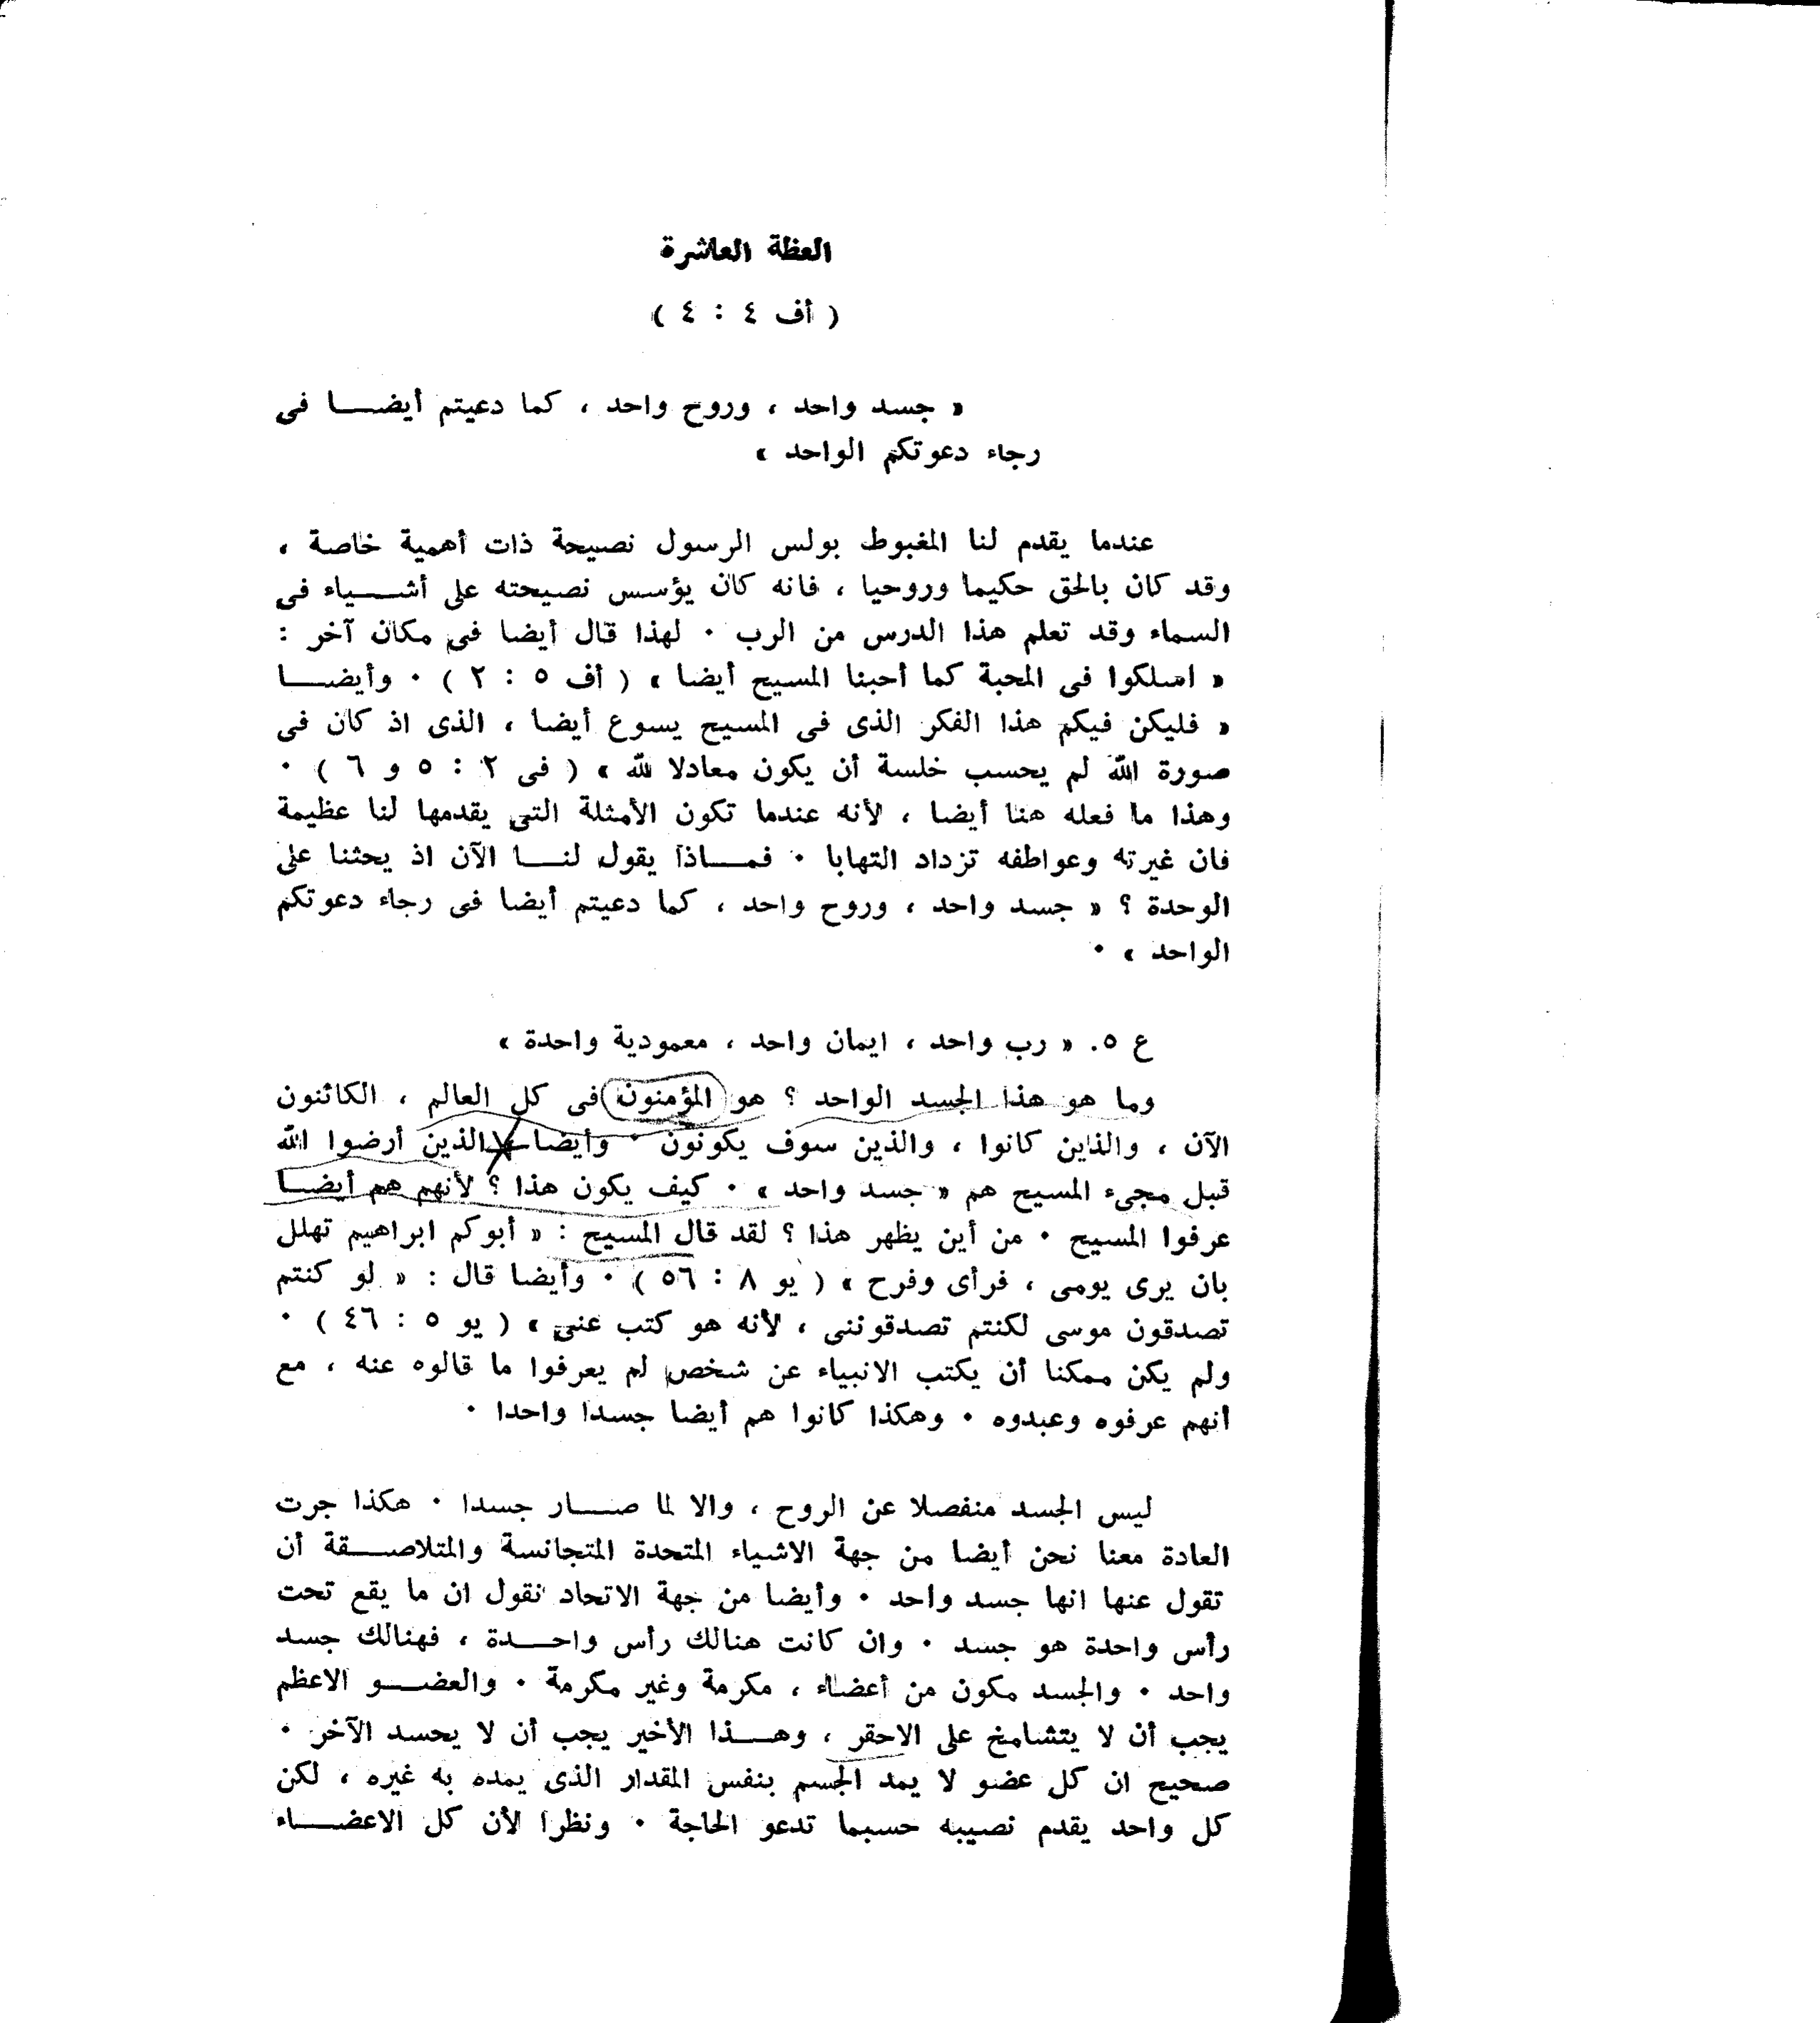 العظة العاشرة
( أف ٤ : ٤ )
« جسد واحد ، وروح واحد ، كما دعيتم أيضـــا فى
رجاء دعوتكم الواحد »
عندما يقدم لنا المغبوط بولس الرسول نصيحة ذات أهمية خاصة ،
وقد كان بالحق حكيما وروحيا ، فانه كان يؤسس نصيحته على أشـــياء فى
السماء وقد تعلم هذا الدرس من الرب ٠ لهذا قال أيضا فى مكان آخر :
« اسلكوا فى المحبة كما أحبنا المسيح أيضا » ( أف ٥ : ٢ ) ٠ وأيضـــا
« فليكن فيكم هذا الفكر الذى فى المسيح يسوع أيضا ، الذى اذ كان فى
صورة الله لم يحسب خلسة أن يكون معادلا لله » ( فى ٢ : ٥ و ٦ ) ٠
وهذا ما فعله هنا أيضا ، لأنه عندما تكون الأمثلة التى يقدمها لنا عظيمة
فان غيرته وعواطفه تزداد التهابا ٠ فمـــاذا يقول لنـــا الآن اذ يحثنا على
الوحدة ؟ « جسد واحد ، وروح واحد ، كما دعيتم أيضا فى رجاء دعوتكم
الواحد » ٠
ع ٥. « رب واحد ، ايمان واحد ، معمودية واحدة »
وما هو هذا الجسد الواحد ؟ هو المؤمنون فى كل العالم ، الكائنون
الآن ، والذين كانوا ، والذين سوف يكونون ٠ وأيضا الذين أرضوا الله
قبل مجىء المسيح هم « جسد واحد » ٠ كيف يكون هذا ؟ لأنهم هم أيضـــا
عرفوا المسيح ٠ من أين يظهر هذا ؟ لقد قال المسيح : « أبوكم ابراهيم تهلل
بان يرى يومى ، فرأى وفرح » ( يو ٨ : ٥٦ ) ٠ وأيضا قال : « لو كنتم
تصدقون موسى لكنتم تصدقوننى ، لأنه هو كتب عنى » ( يو ٥ : ٤٦ ) ٠
ولم يكن ممكنا أن يكتب الانبياء عن شخص لم يعرفوا ما قالوه عنه ، مع
أنهم عرفوه وعبدوه ٠ وهكذا كانوا هم أيضا جسدا واحدا ٠
ليس الجسد منفصلا عن الروح ، والا لما صـــار جسدا ٠ هكذا جرت
العادة معنا نحن أيضا من جهة الاشياء المتحدة المتجانسة والمتلاصـــقة أن
تقول عنها انها جسد واحد ٠ وأيضا من جهة الاتحاد نقول ان ما يقع تحت
رأس واحدة هو جسد ٠ وان كانت هنالك رأس واحـــدة ، فهنالك جسد
واحد ٠ والجسد مكون من أعضاء ، مكرمة وغير مكرمة ٠ والعضـــو الاعظم
يجب أن لا يتشامخ على الاحقر ، وهـــذا الأخير يجب أن لا يحسد الآخر ٠
صحيح ان كل عضو لا يمد الجسم بنفس المقدار الذى يمده به غيره ، لكن
كل واحد يقدم نصيبه حسبما تدعو الحاجة ٠ ونظرا لأن كل الاعضـــاء